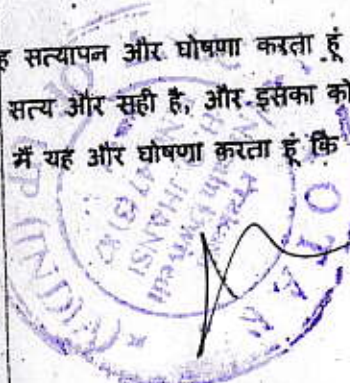 ह सत्यापन और घोषणा करता हूं
सत्य और सही है, और इसका को
मैं यह और घोषणा करता हूं कि
JHANSI
(INDIA)
NOTARY